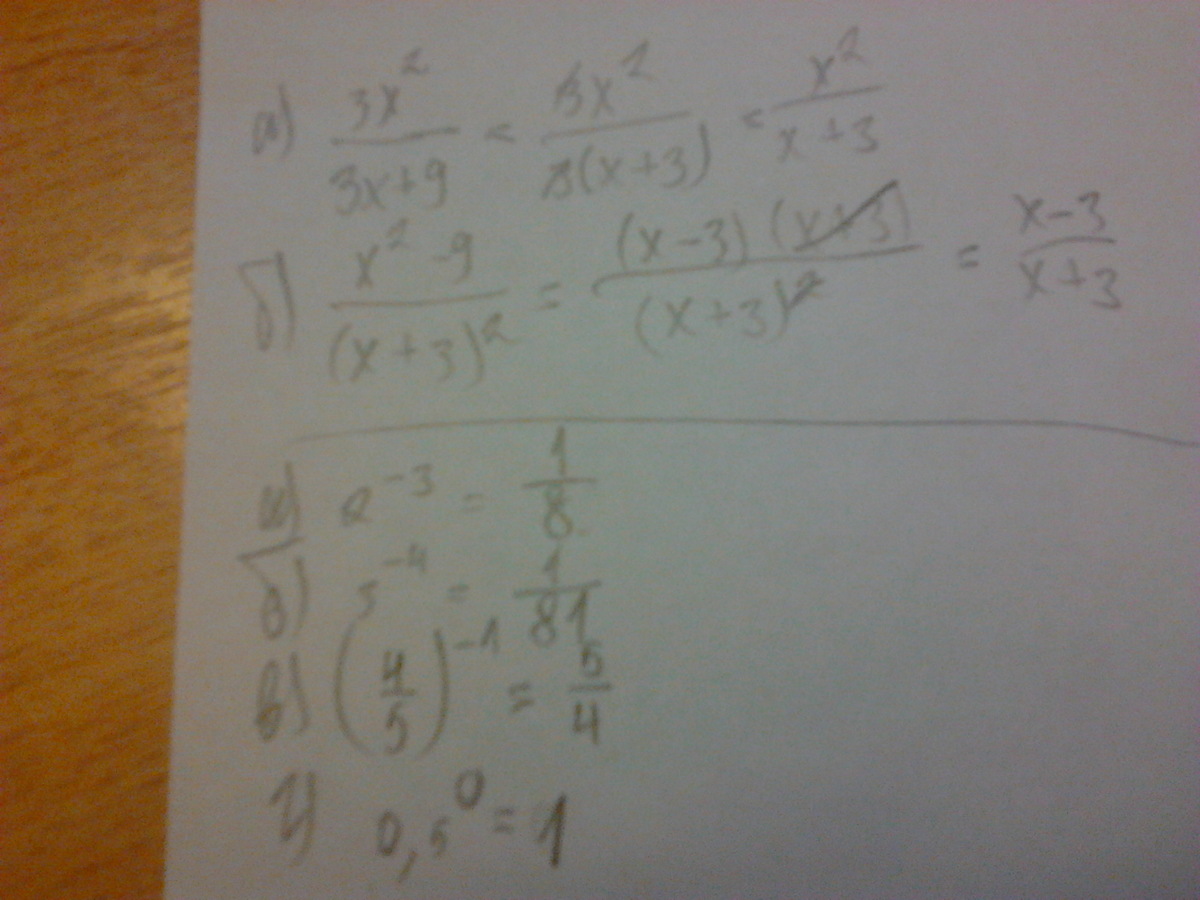 а) 3x²/(3x+9) = 3x²/(3(x+3)) = x²/(x+3)
б) (x²-9)/(x+3)² = (x-3)(x+3)/(x+3)² = (x-3)/(x+3)
а) 2⁻³ = 1/8
б) 3⁻⁴ = 1/81
в) (4/5)⁻¹ = 5/4
г) 0,5⁰ = 1